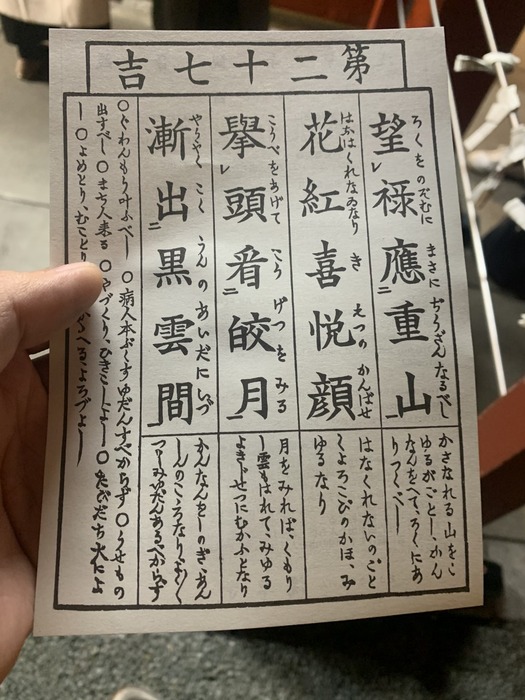 第二十七吉
ろくをのぞむに まさに ぢうざんなるべし
望禄應重山
はなはくれなゐなり き えつの かんばせ
花紅喜悦顔
こうべをあげて こうげつをみる
擧頭看皎月
やうやく こくうんのあいだにいづ
漸出黒雲間
かさなれる山をこ
ゆるがごとし、かん
なんをへて、ろくにあ
りつくべし
はなくれないのごと
くよろこびのかほ、み
ゆるなり
月をみれば、くもり
し雲もはれて、みゆる
よきじせつにむかふとなり
かんなんをしのぎ、あん
しんのころなり
つゝしみゆだんあるべからず
○ぐわんもう叶ふべし ○病人本ぶくすゆだんすべからず ○うせもの
出すべし ○まち人来る ○やづくり、ひきこしよし ○たびだち大によ
し ○よめとり、むことり かゝへるよろづよし